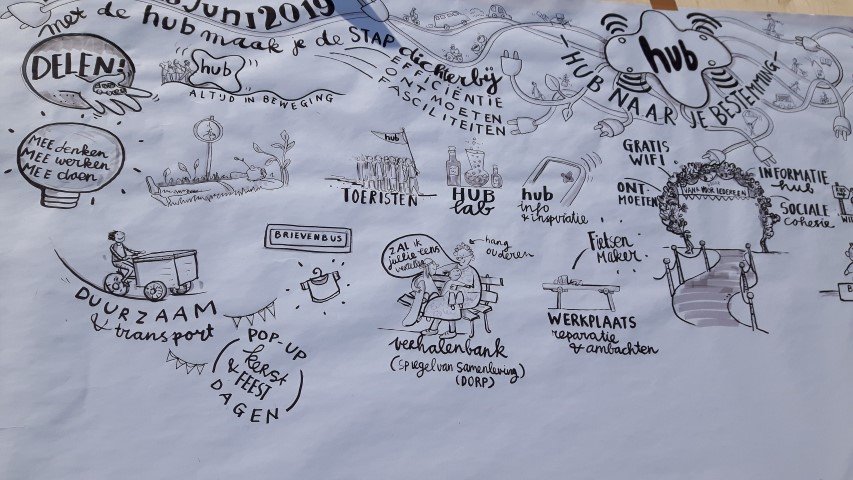 Juni 2019
met de hub maak je de STAP dichterbij
EFFICIËNTIE
ONTMOETEN
FASCILITEITEN
DELEN!
hub
ALTIJD IN BEWEGING
hub
HUB NAAR JE BESTEMMING
MEE denken
MEE werken
MEE doen
hub
TOERISTEN
HUB
lab
hub
info
& inspiratie
GRATIS
WIFI
ONT-
MOETEN
VAN & VOOR IEDEREEN
INFORMATIE
hub
SOCIALE
cohesie
BRIEVENBUS
ZAL ik
jullie eens
vertellen
hang
ouderen
Fietsen
Maker
DUURZAAM
& transport
WERKPLAATS
reparatie
& ambachten
verhalenbank
(Spiegel van Samenleving)
(DORP)
POP-UP
kerst
& FEEST
DAGEN